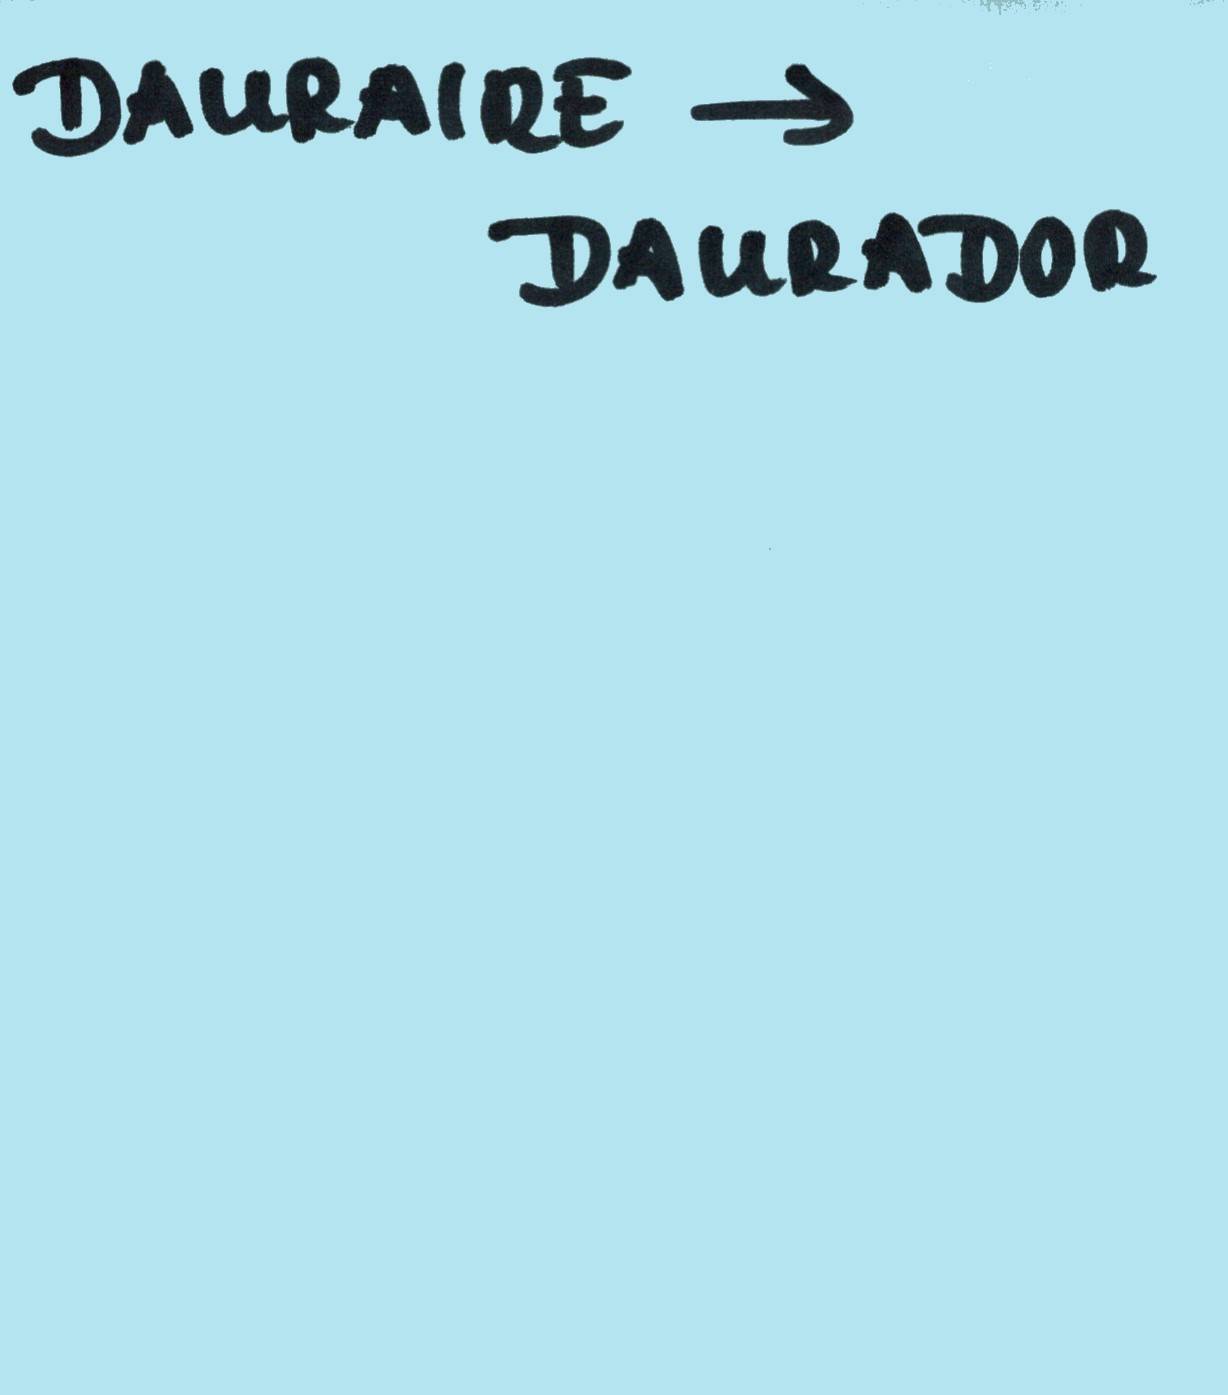 DAURAIRE →
DAURADOR